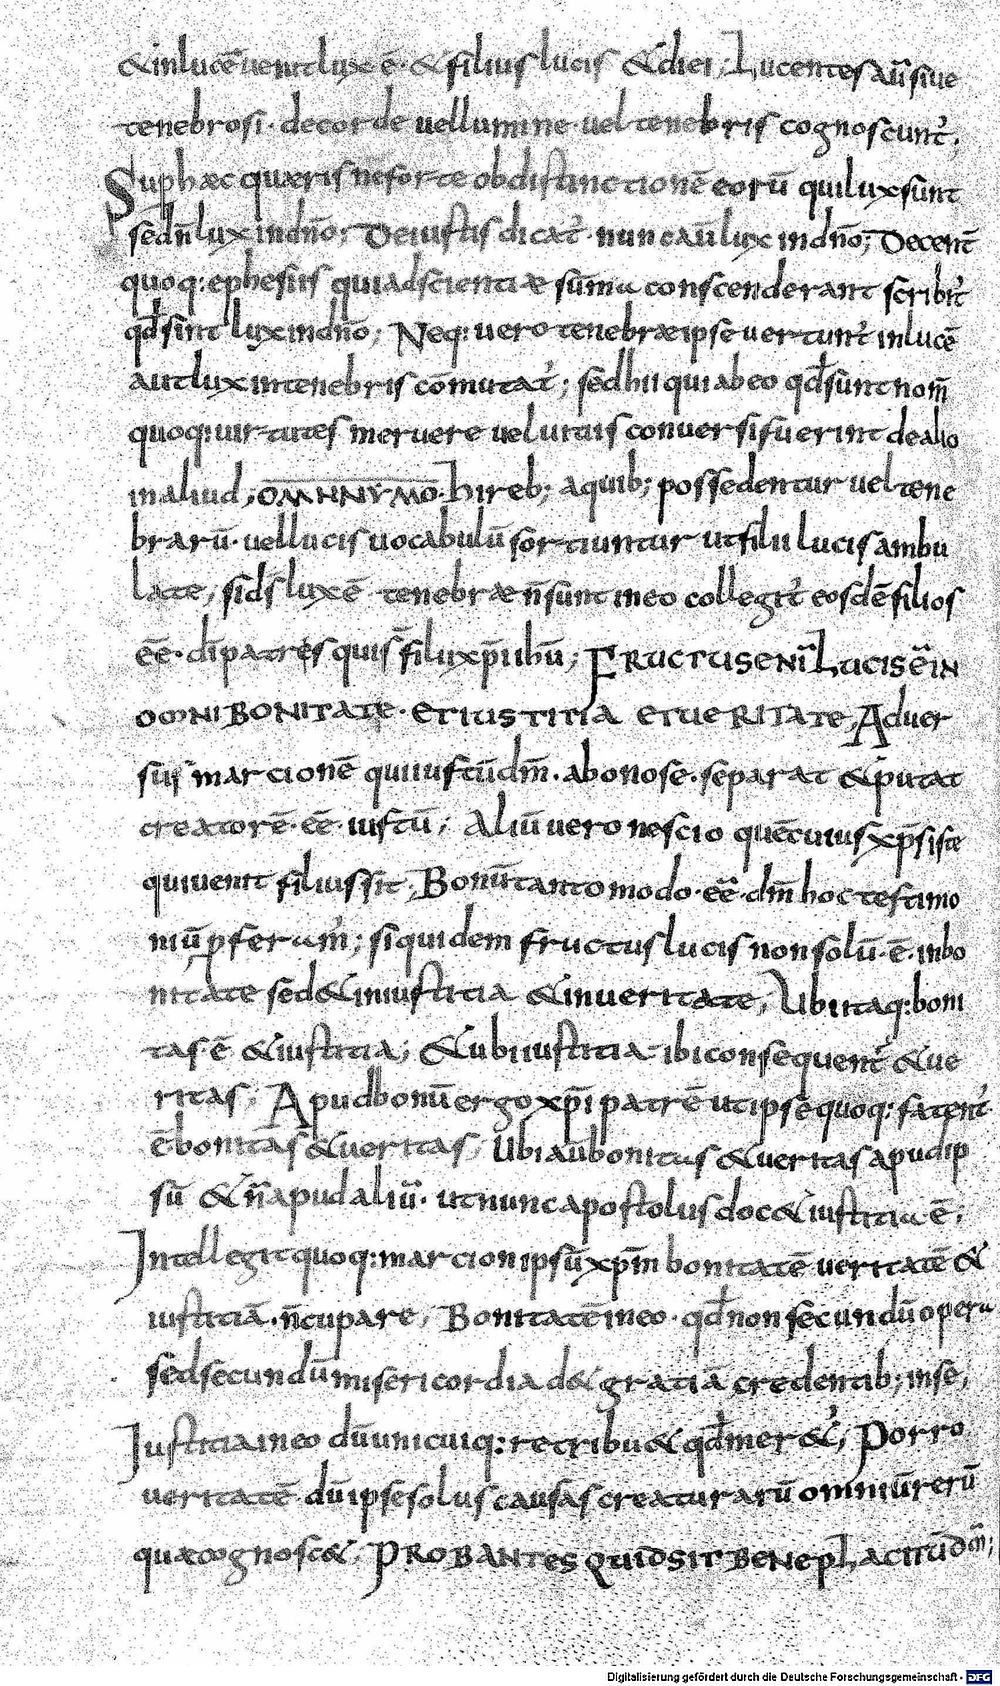 &inlucē uenit lux ē· & filius lucis &diei; Lucentes aū siue
tenebrosi· decorde uellumine· uel tenebris cognoscunt̄.
Suphæc quæris nēforte obdistinctionē eorū quiluxsunt
sedn̄lux indn̄o; Deiustis dicat̄· nuncaūlux indn̄o; Decent̄
quoq: ephesiis quiadscientiæ sūma conscenderant scribit̄
qd̄sint luxindn̄o; Neq: uero tenebræipse uertunt̄ inlucē
autluxintenebris cōmutat̄; sedhii quiabeo qd̄sunt nom̄
quoq: uirtutes meruere uel uitiis conuersifuerint dealio
inaliud; OMⲰNYMⲰ. hireb; aquib; possedentur ueltene
brarū· uellucis uocabulū sortiuntur utfilii lucis ambu
late, sids̄ lux ē tenebræ n̄sunt ineo collegit̄ eosdē filios
ēē· dīpatres quis̄ filuxp̄iibū; FRUCTUSENĪ LUCISĒIN
OMNI BONITATE· ETIUSTITIA ETUERITATE, Aduer
sus marcionē quiiustūdm̄. abonose· separat &putat
creatorē· ēē· iustū; Aliū uero nescio quēcuius xp̄sīste
quiuenit filiussit, Bonūtantomodo· ēē· dm̄ hoc testimo
niū pferam̄; siquidem fructus lucis non solū· ē· inbo
nitate sed&iniustitia &inueritate, Ubiitaq: boni
tas· ē &iustitia; &ubiiustitia ibiconsequent̄ &ue
ritas; Apudbonū ergo xp̄i patrē utipse quoq: fatent̄·
ē bonitas &ueritas, Ubiaūbonitas &ueritas apudip
sū &n̄apudaliū· utnuncapostolus doc& iustitia ē;
Intellegit quoq: marcion ipsūxp̄m bonitatē ueritatē &
iustitiā· n̄cupare, Bonitatē ineo· qd̄non secundū opera
sedsecundū misericordia d& gratiā credentib; inse,
Iustitia ineo dū unicuiq: retribu& qd̄mer&; Porro
ueritatē dū ipse solus causas creaturarū omniū rerū
quæcognosc&. PROBANTES QUIDSIT BENEPLACITŪDM̄;
Digitalisierung gefördert durch die Deutsche Forschungsgemeinschaft - DFG